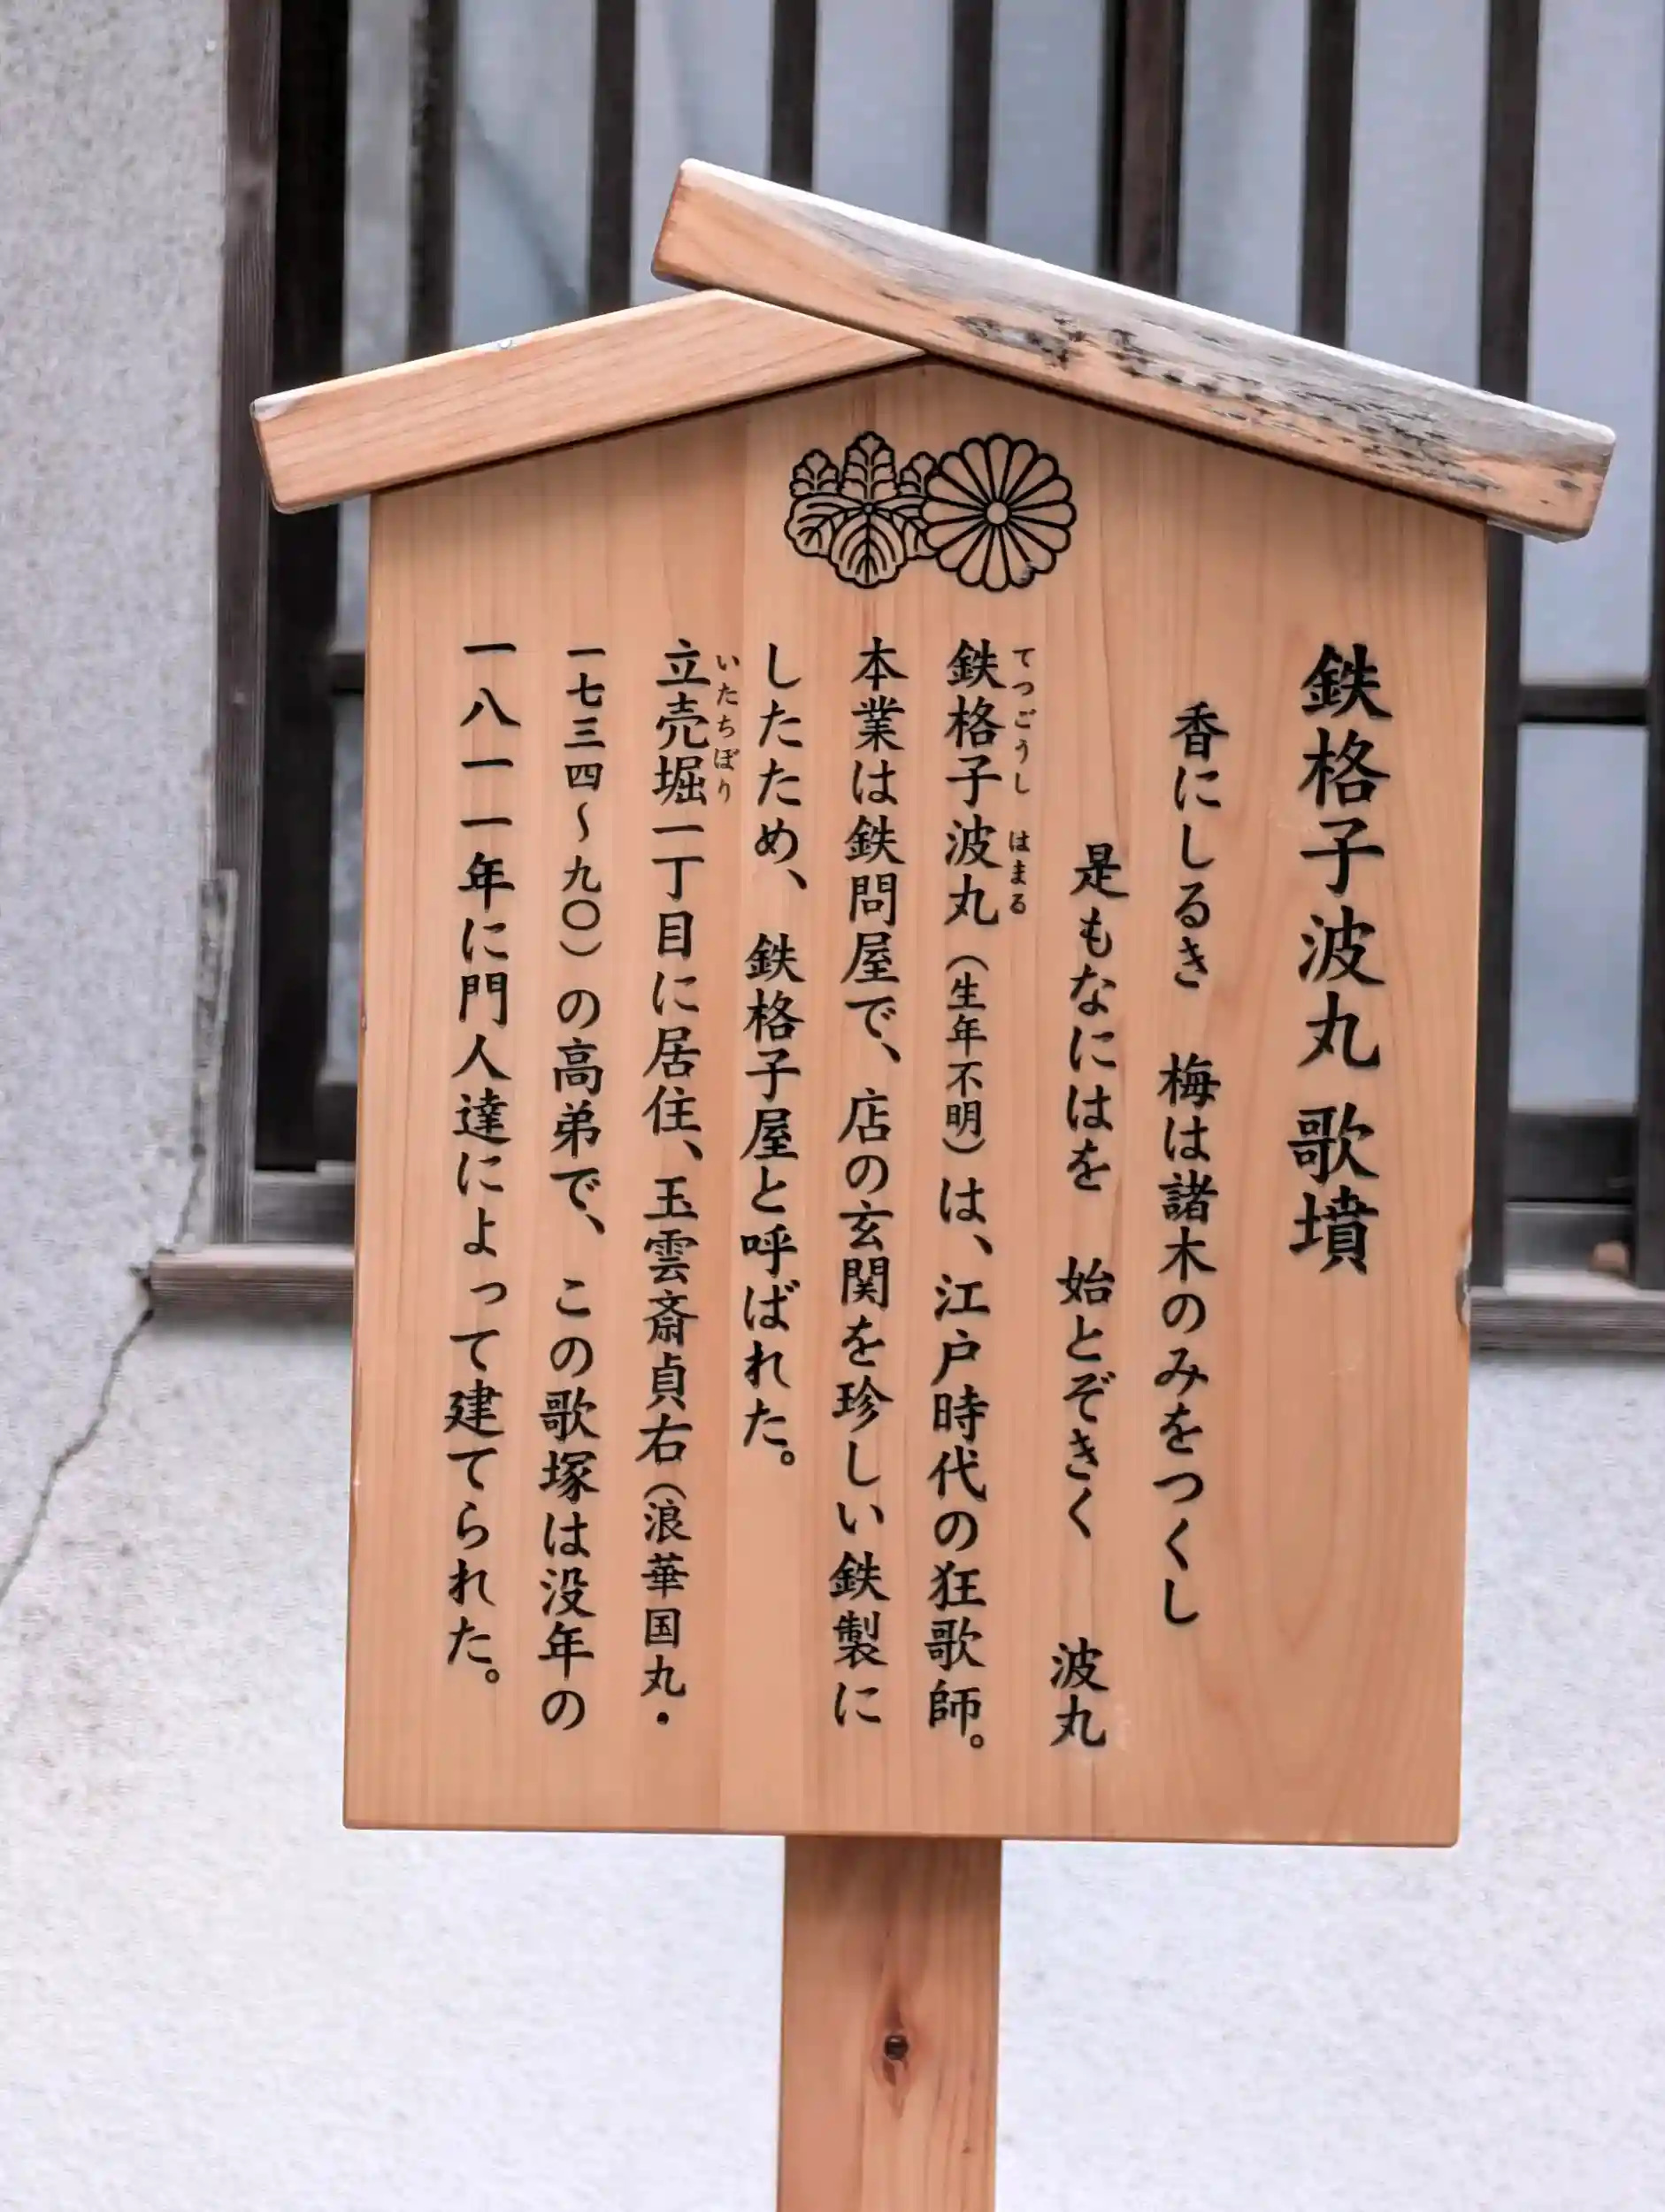 鉄格子波丸 歌墳
香にしるき 梅は諸木のみをつくし
是もなにはを 始とぞきく 波丸
てつごうし はまる
鉄格子波丸（生年不明）は、江戸時代の狂歌師。
本業は鉄問屋で、店の玄関を珍しい鉄製に
したため、鉄格子屋と呼ばれた。
いたちぼり
立売堀一丁目に居住、玉雲斎貞右（浪華国丸・
一七三四～九〇）の高弟で、この歌塚は没年の
一八一一年に門人達によって建てられた。